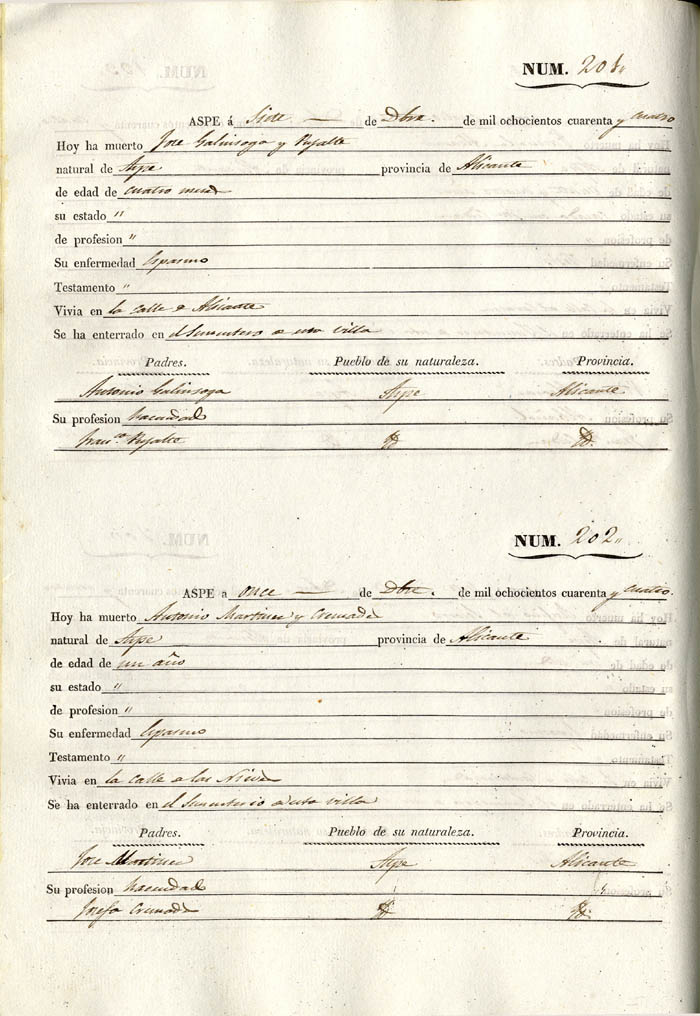 NUM. 201.
ASPE á Siete — de Dbre. de mil ochocientos cuarenta y cuatro
Hoy ha muerto Jose Galinsoga y
natural de Aspe provincia de Alicante
de edad de cuatro meses
su estado "
de profesion "
Su enfermedad Espasmo
Testamento "
Vivia en la calle de Alicante
Se ha enterrado en el Sementerio de esta villa
Padres. Pueblo de su naturaleza. Provincia.
Antonio Galinsoga Aspe Alicante
Su profesion hacendado
Fran.ca Yd Yd.
NUM. 202.
ASPE a once — de Dbre. de mil ochocientos cuarenta y cuatro.
Hoy ha muerto Antonio Martinez y Cremades
natural de Aspe provincia de Alicante
de edad de un año
su estado "
de profesion "
Su enfermedad Espasmo
Testamento "
Vivia en la calle de las Nieves
Se ha enterrado en el Sementerio de esta villa
Padres. Pueblo de su naturaleza. Provincia.
Jose Martinez Aspe Alicante
Su profesion hacendado
Josefa Cremades Yd Yd.